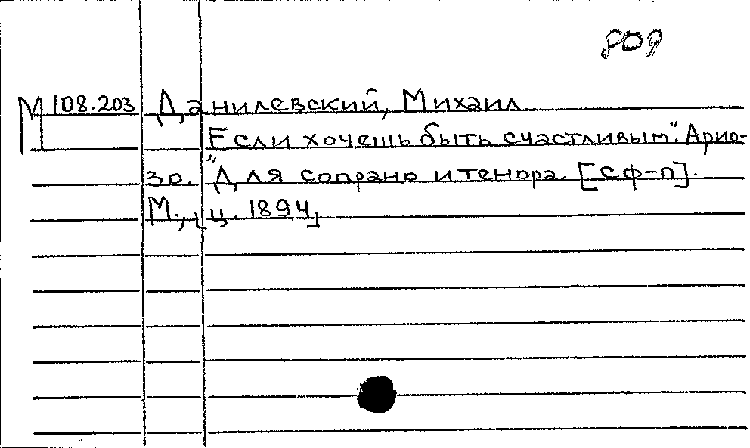 809
М 108.203 Данилевский, Михаил
"Если хочешь быть счастливым". Арио-
зо. Для сопрано и тенора. [с ф-п].
М., [ц. 1894]